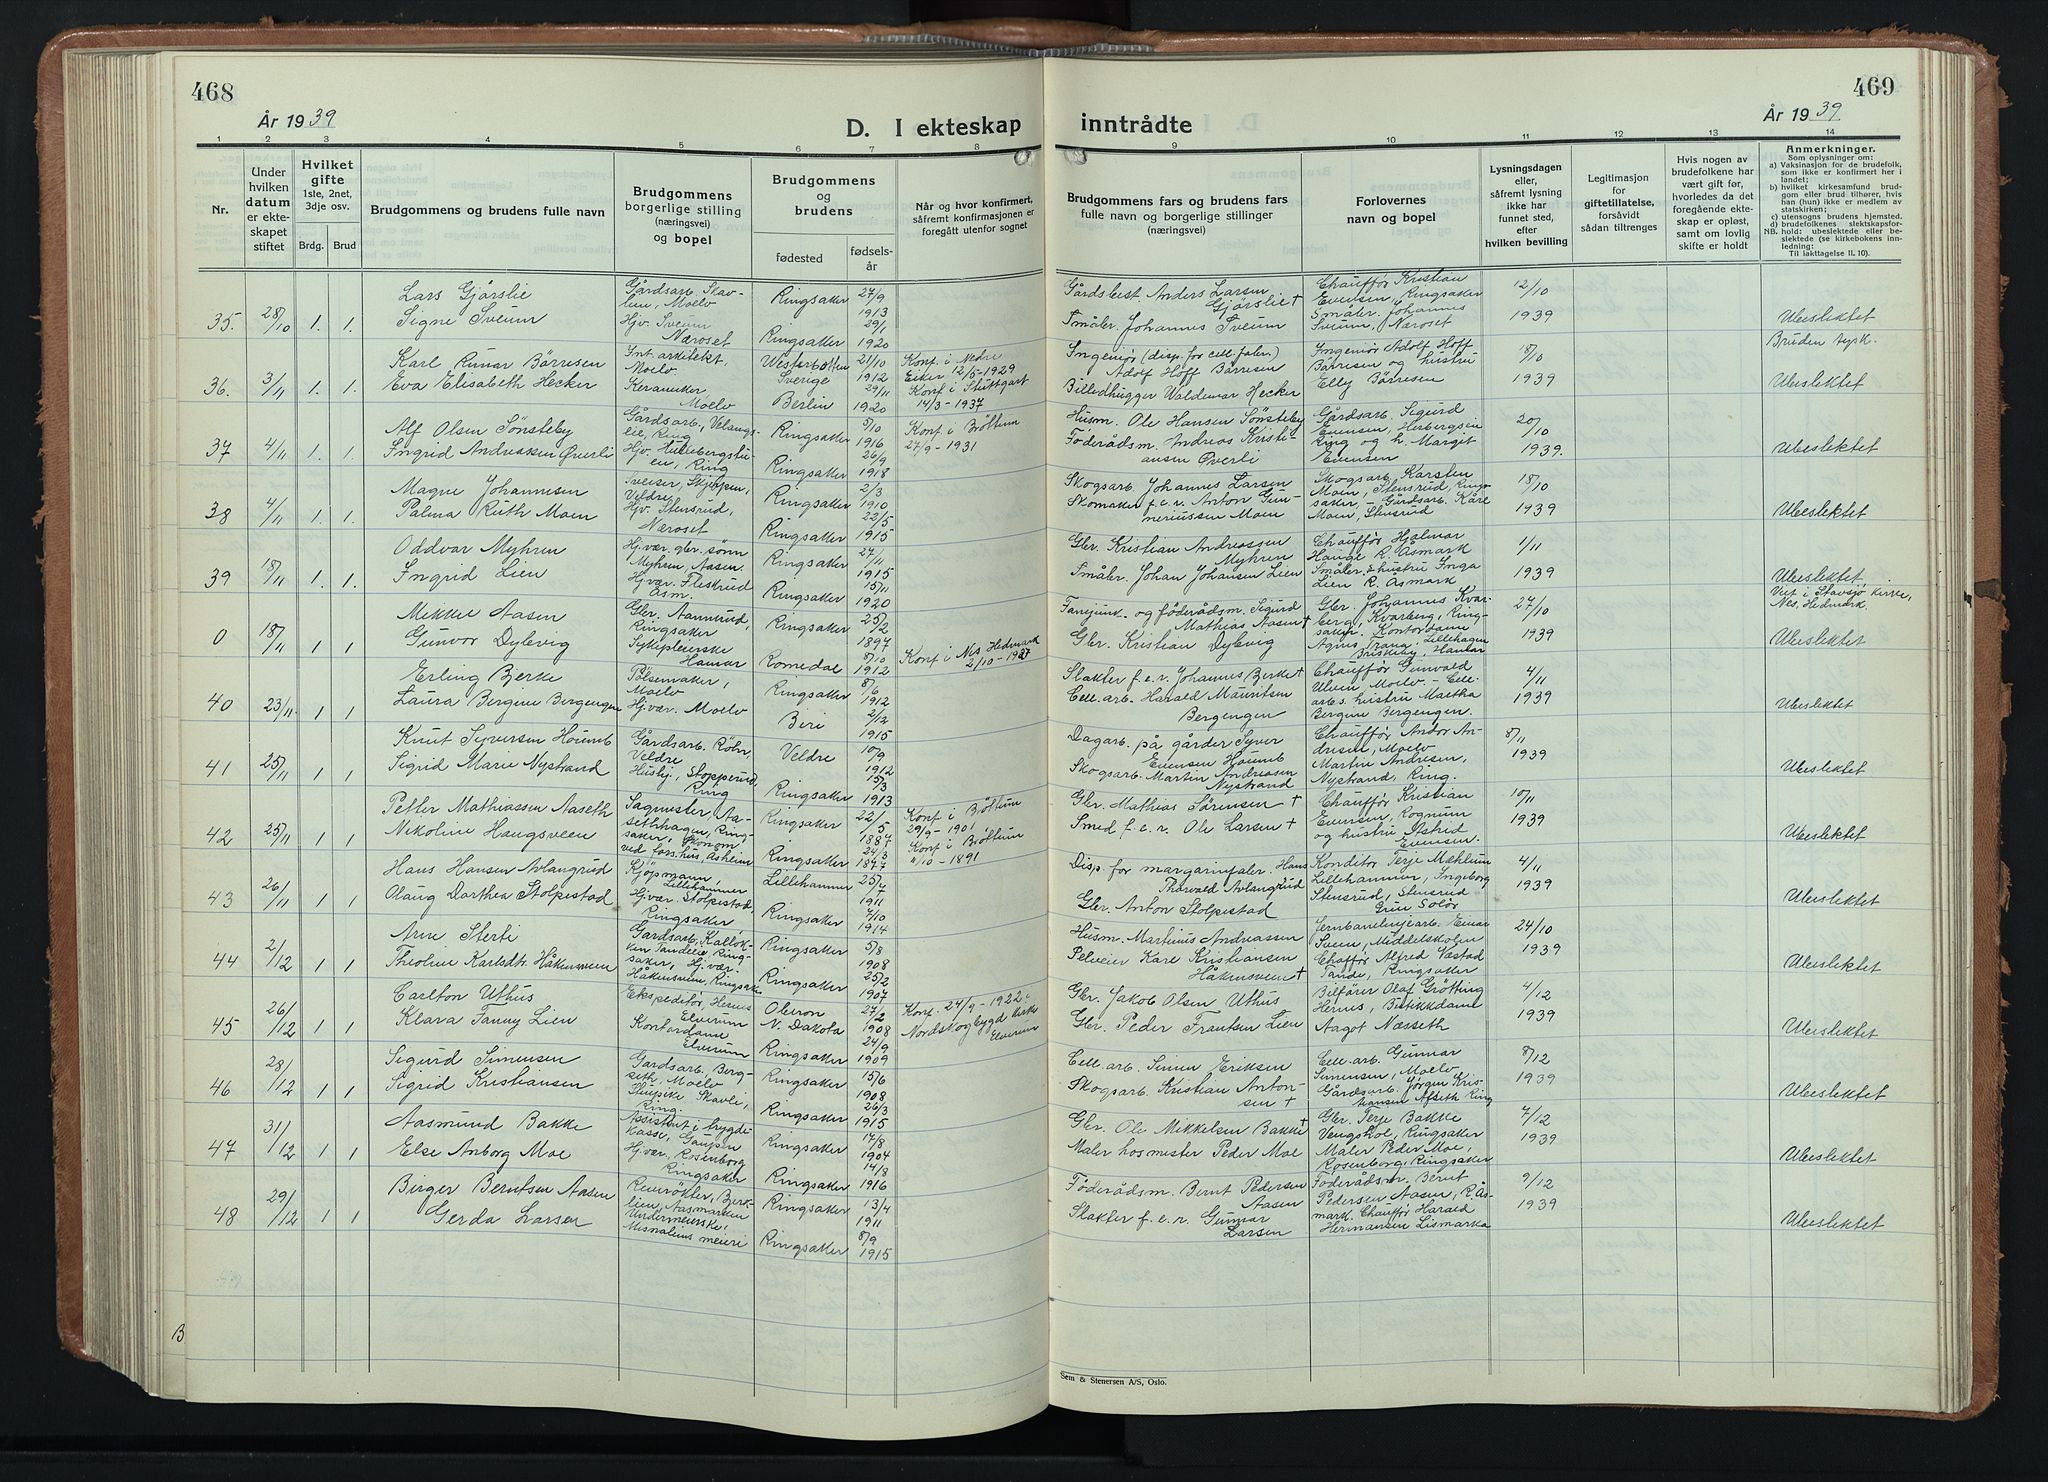 468
År 1939
D. I ekteskap
1 2 3 4 5 6 7 8
Nr.
Under hvilken datum er ekteskapet stiftet
Hvilket gifte 1ste, 2net, 3dje osv.
Brdg. Brud
Brudgommens og brudens fulle navn
Brudgommens borgerlige stilling (næringsvei) og bopel
Brudgommens og brudens
fødested
fødselsår
Når og hvor konfirmert, såfremt konfirmasjonen er foregått utenfor sognet
35. 28/10 1. 1.
Lars Gjørslie
Signe Sveum
Gårdsarb. Skavlien, Moelv
Hjv. Sveum Næroset
Ringsaker 27/9 1913
Ringsaker 29/1 1920
36. 3/11 1. 1.
Karl Runar Börresen
Eva Elisabeth Hecker
Int. arkitekt, Moelv
Keramiker Moelv
Westerbotten Sverige 21/10 1912
Berlin 29/11 1920
Konf. i Nedre Eiker 12/5-1929
Konf. i Stuttgart 14/3-1937
37 4/11 1. 1.
Alf Olsen Sønsteby
Ingrid Andreassen Øverli
Gårdsarb., Velangslie, Ring
Ringsaker 1916
Ringsaker 26/9 1918
Konf. i Bröttum 27/9-1931
38 4/11 1. 1.
Magne Johannesen
Palma Ruth Moen
Sveiser, Skjeppen, Veldre
Hjv. Stensrud, Næroset
Ringsaker 2/3 1910
Ringsaker 22/5 1915
39 18/11 1. 1.
Oddvar Myhren
Ingrid Lien
Hj.vær. gbr. sönn Myhren, Aasen
Hj.vær. Fleskrud Asm.
Ringsaker 27/11 1915
Ringsaker 15/11 1920
0 18/11 1 1
Mikkel Aasen
Gunvor Dylevig
Gbr. Aannerud, Ringsaker
Sykepleierske Hamar
Ringsaker 25/2 1897
Romedal 8/10 1912
Konf. i Nes Hedmark 2/10-1927
40 23/11 1 1
Erling Bjerke
Laura Bergine Bergengen
Pølsemaker, Moelv
Hj.vær. Moelv
Ringsaker 8/6 1912
Biri 2/12 1915
41 25/11 1 1
Knut Syversen Houmb
Sigrid Marie Nystrand
Gårdsarb. Röhr, Veldre
Hushj., Stopperud, Ring
Veldre 10/9 1912
Ringsaker 15/3 1913
42 25/11 1 1
Petter Mathiassen Aaseth
Nikoline Haugsveen
Sagmester, Aasethhagen, Ringsaker
Økonom ved fors.hus, Åsheim
Ringsaker 22/5 1887
Ringsaker 24/3 1877
Konf. i Bröttum 29/9-1901
Konf. i Bröttum 11/10-1891
43 26/11 1 1
Hans Hansen Avlangrud
Olaug Dorthea Stolpestad
Kjöpmann, Lillehammer
Hj.vær. Stolpestad, Ringsaker
Lillehammer 25/7 1911
Ringsaker 7/10 1914
44 2/12 1 1
Arne Sterti
Theoline Karlsdtr. Håkensveen
Gårdsarb. Ringsaker, Hj.vær. Håkensveen, Ringsaker
Ringsaker 5/8 1908
Ringsaker 25/2 1907
45 26/12 1 1
Carlton Uthus
Klara Fanny Lien
Ekspeditör, Hernes Elverum
Kontordame Elverum
Oberon N. Dakota 27/2 1908
Ringsaker 24/9 1909
Konf. 24/9-1922 i Nordskogbygd kirke Elverum
46 28/12 1 1
Sigurd Simensen
Sigrid Kristiansen
Gårdsarb., Bergseth, Moelv
Skavli, Ring.
Ringsaker 15/6 1908
Ringsaker 26/3 1915
47 31/12 1 1
Aasmund Bakke
Else Anborg Moe
Assistent i trygdekasse, Gaupen
Hj.vær. Rosenborg Ringsaker
Ringsaker 17/8 1904
Ringsaker 14/8 1916
48 29/12 1 1
Birger Berntsen Aasen
Gerda Larsen
Reverökter, Berklien, Aasmarken
Undermeierske, Mesnaliens meieri
Ringsaker 13/4 1911
Ringsaker 8/9 1915
B
469
År 1939
inntrådte
9 10 11 12 13 14
Brudgommens fars og brudens fars fulle navn og borgerlige stillinger (næringsvei)
Forlovernes navn og bopel
Lysningsdagen eller, såfremt lysning ikke har funnet sted, efter hvilken bevilling
Legitimasjon for giftetillatelse, forsåvidt sådan tiltrenges
Hvis nogen av brudefolkene har vært gift før, hvorledes da det foregående ekteskap er opløst, samt om lovlig skifte er holdt
Anmerkninger.
Som oplysninger om:
a) Vaksinasjon for de brudefolk, som ikke er konfirmert her i landet;
b) hvilket kirkesamfund brudgom eller brud tilhører, hvis han (hun) ikke er medlem av statskirken;
c) utensogns brudens hjemsted.
d) brudefolkenes slektskapsforhold: ubeslektede eller beslektede (se kirkebokens innledning:
NB. Til iakttagelse II. 10).
Gårdsbest. Anders Larsen Gjørslie †
Småbr. Johannes Sveum
Chaufför Kristian Evensen, Ringsaker
Småbr. Johannes Sveum, Næroset
12/10 1939
Ubeslektet
Ingeniør (disp. for cell.fabr.) Adolf Hoff Børresen
Billedhugger Waldemar Hecker
Ingeniør Adolf Hoff Børresen og hustru Elly Børresen
18/10 1939
Bruden tysk.
Ubeslektet
Husm. Ole Hansen Sønsteby
Föderådsm. Andreas Kristiansen Øverli
Gårdsarb. Sigurd Evensen, Herbergslien Ring og h. Margit Evensen
20/10 1939.
Ubeslektet
Skogsarb. Johannes Larsen
Skomaker f.e.v. Anton Gunneriussen Moen
Skogsarb. Karsten Moen, Stensrud, Ringsaker - Gårdsarb. Kåre Moen, Stensrud
18/10 1939
Ubeslektet
Gbr. Kristian Andreassen Myhren
Småbr. Johan Johansen Lien
Chauffør Hjalmar Hauge R. Åsmark
Småbr.hustru Inga Lien R. Åsmark
1/11 1939
Ubeslektet.
Fanejunk. og föderådsm. Sigurd Mathias Aasen †
Gbr. Kristian Dylevig
Gbr. Johannes Kvarberg, Kvarberg, Ringsaker. Kontordame Agnes Lillehagen Briskeby, Hamar
27/10 1939
Viet i Stavsjø kirke, Nes, Hedmark.
Ubeslektet
Slakter f.e.v. Johannes Bjerke †
Cell.arb. Harald Mauritsen Bergengen
Chauffør Gunvald Ulven Moelv - Cell.arb.s hustru Martha Bergine Bergengen.
4/11 1939
Ubeslektet
Dagarb. på gårder Syver Evensen Houmb
Skogsarb. Martin Andreasen Nystrand
Chauffør Andor Andresen, Moelv
Martin Andresen, Nystrand, Ring.
8/11 1939
Ubeslektet
Gbr. Mathias Sörensen †
Smed f.e.v. Ole Larsen †
Chauffør Kristian Evensen, Rognum og hustru Astrid Evensen.
10/11 1939
Ubeslektet
Disp. for margarinfabr. Hans Thorvald Avlangrud
Gbr. Anton Stolpestad
Konditor Terje Mæhlum Lillehammer, Ingeborg Stensrud, Stensrud, Grue Solör
4/11 1939
Ubeslektet
Husm. Martinus Andreassen
Pelseier Kare Kristiansen Håkensveen †
Jernbanelinjearb. Einar Sveen, Middelskolen
Chaffør Alfred Vestad Tande, Ringsaker
24/10 1939
Ubeslektet
Gbr. Jakob Olsen Uthus
Gbr. Peder Frantsen Lien
Bilfører Olaf Grötting Hernes, Butikkdame Aagot Næsseth
4/12 1939
Ubeslektet
Cell.arb. Simen Eriksen
Skogsarb. Kristian Antonsen †
Cell.arb. Gunnar Simensen, Moelv
Gårdsarb. Jörgen Kristiansen Afseth Ring
8/12 1939
Ubeslektet
Gbr. Ole Mikkelsen Bakke †
Maler hosmester Peder Moe
Gbr. Terje Bakke Vengshol, Ringsaker
Maler Peder Moe, Rosenborg, Ringsaker
7/12 1939
Ubeslektet
Föderådsm. Bernt Pedersen Aasen
Slakter f.e.v. Gunnar Larsen
Föderådsm. Bernt Pedersen Aasen, R. Åsmark. Chauffør Harald Hermansen Lismarka
9/12 1939
Ubeslektet
Sem & Stenersen A/S, Oslo.